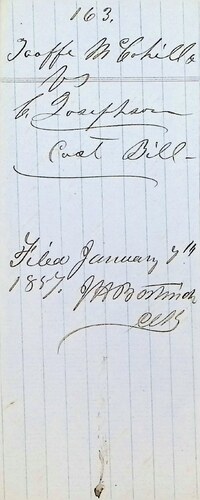 163.
Tooffe McCohill &
vs
C Josephson
Cost Bill
Filed January 7th
1857. J H Bostwick
Clk